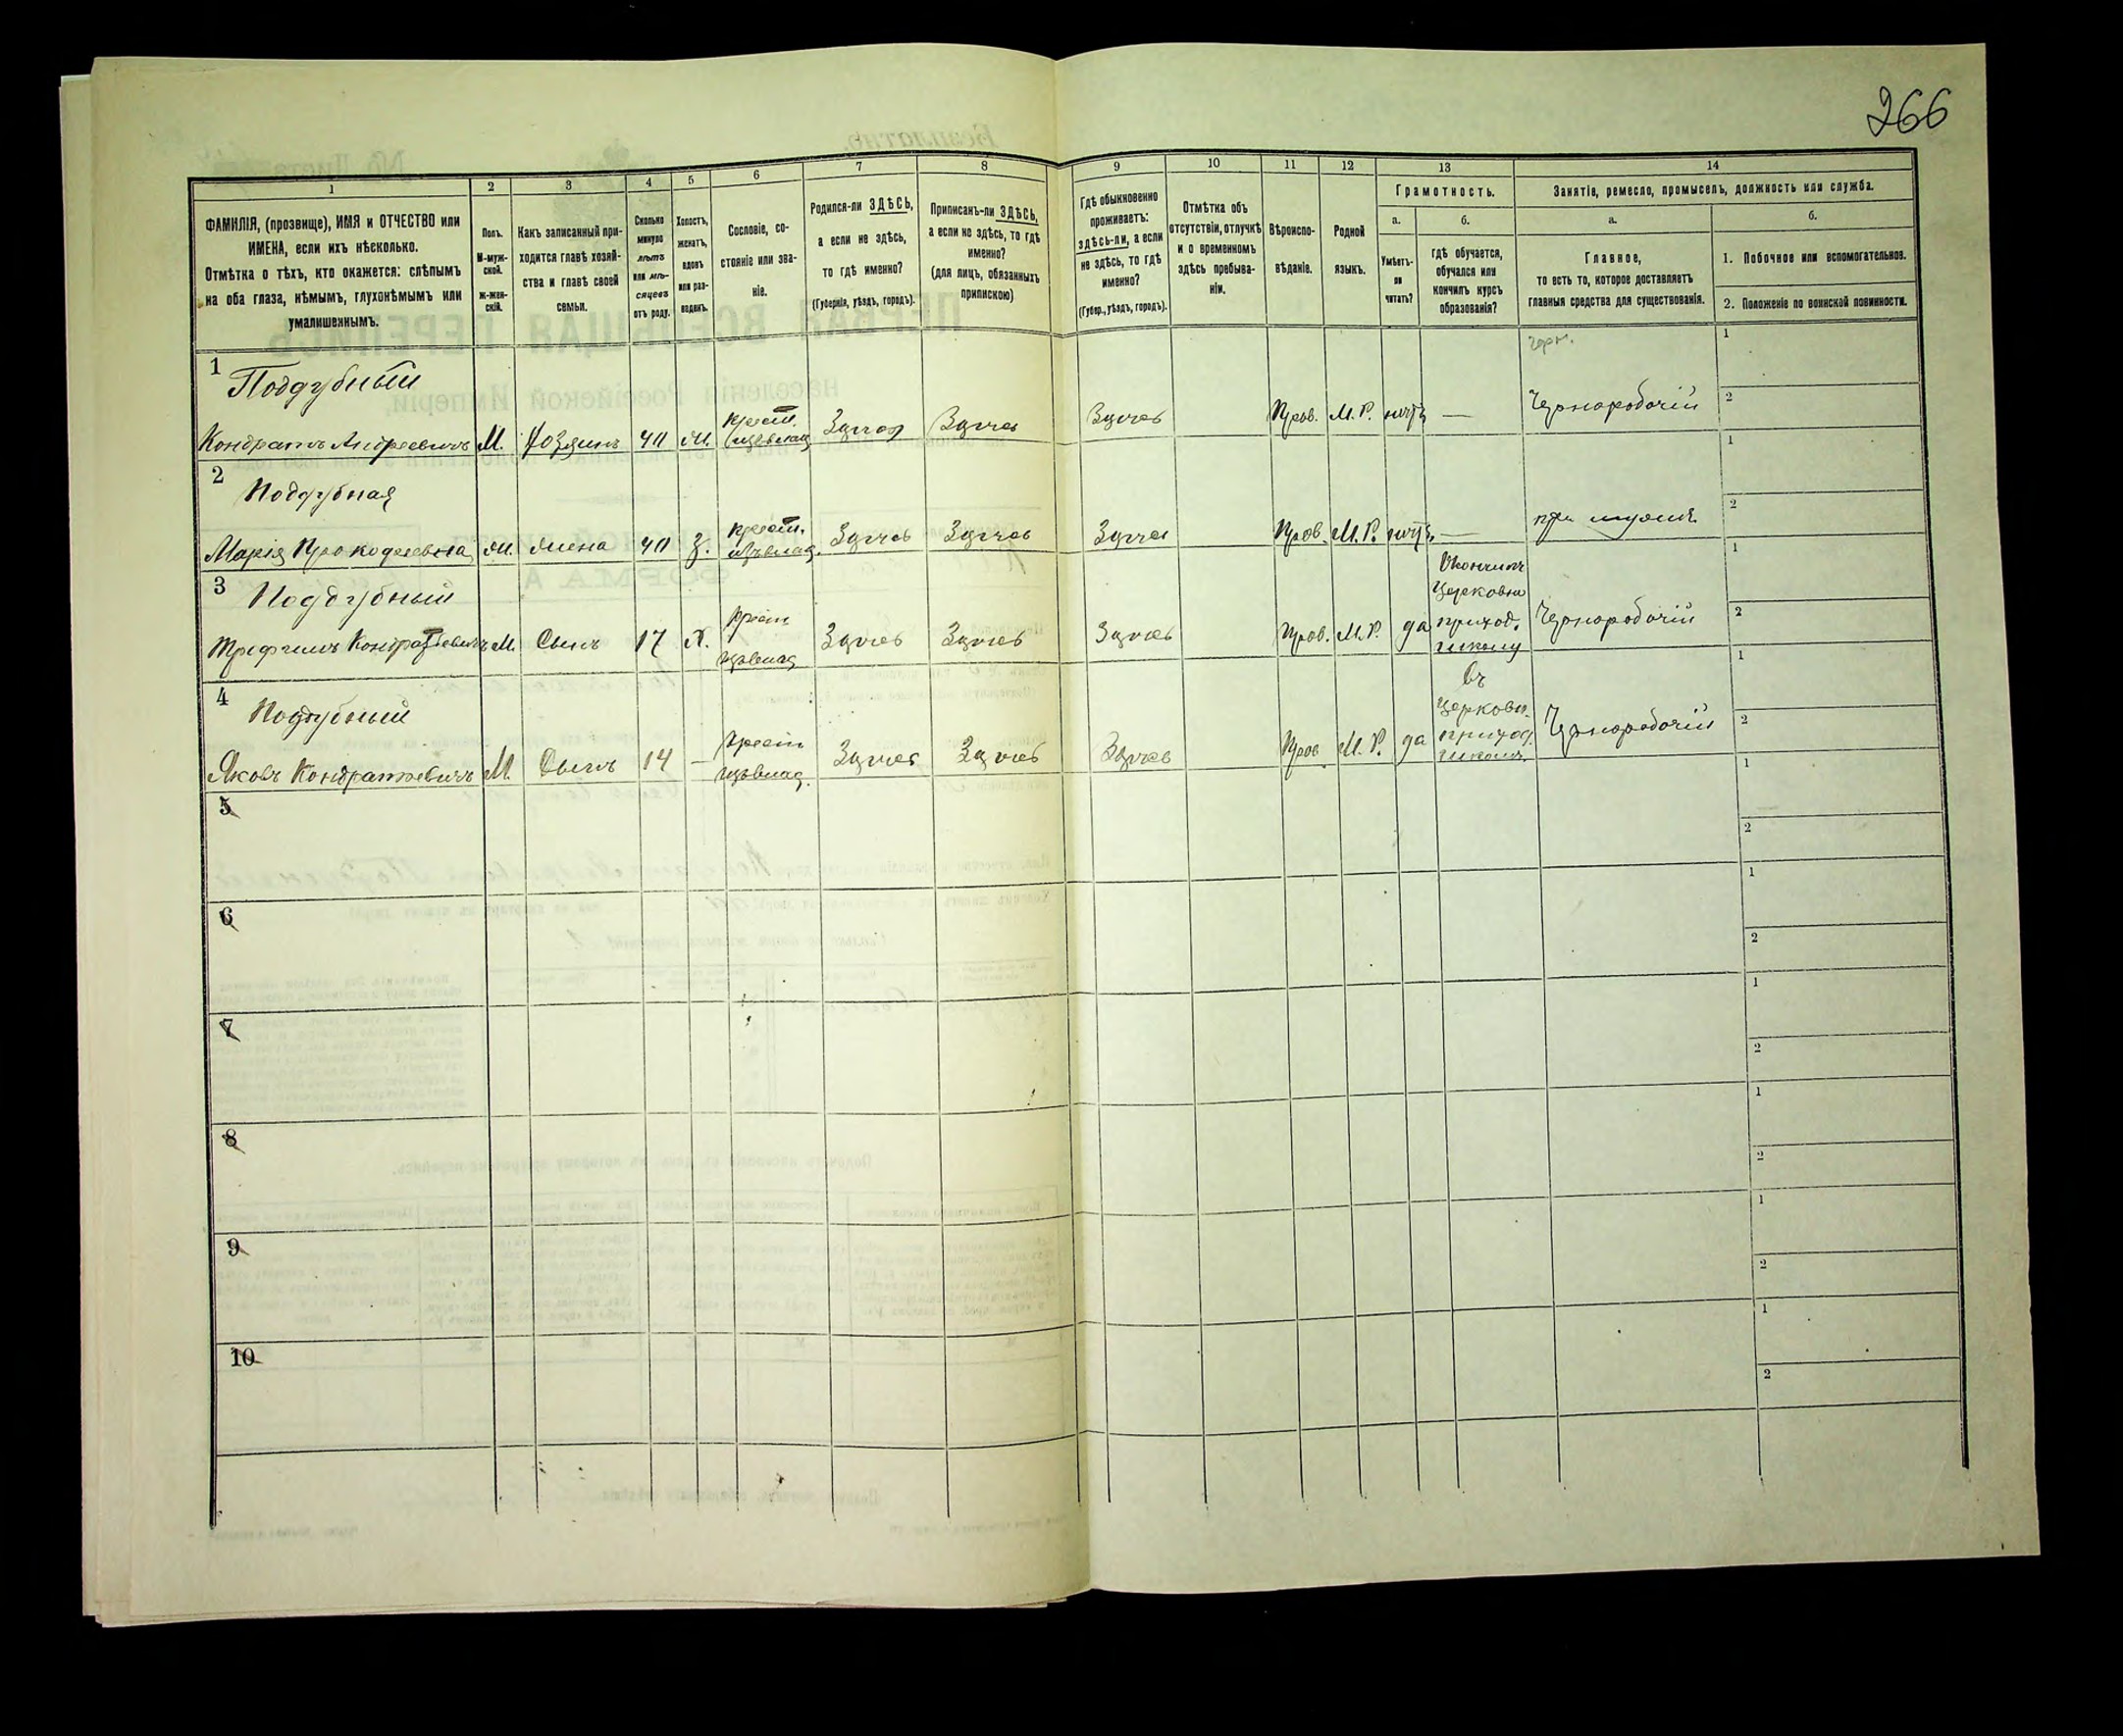 266
1
2
3
4
5
6
7
8
9
10
11
12
13
14
ФАМИЛІЯ, (прозвище), ИМЯ и ОТЧЕСТВО или
ИМЕНА, если ихъ нѣсколько.
Отмѣтка о тѣхъ, кто окажется: слѣпымъ
на оба глаза, нѣмымъ, глухонѣмымъ или
умалишеннымъ.
Полъ.
М-муж-
ской.
Ж-жен-
скій.
Какъ записанный при-
ходится главѣ хозяй-
ства и главѣ своей
семьи.
Сколько
минуло
лѣтъ
или мѣ-
сяцевъ
отъ роду.
Холостъ,
женатъ,
вдовъ
или раз-
веденъ.
Сословіе, со-
стояніе или зва-
ніе.
Родился-ли ЗДѢСЬ,
а если не здѣсь,
то гдѣ именно?
(Губернія, уѣздъ, городъ).
Приписанъ-ли ЗДѢСЬ,
а если не здѣсь, то гдѣ
именно?
(для лицъ, обязанныхъ
припискою)
Гдѣ обыкновенно
проживаетъ:
здѣсь-ли, а если
не здѣсь, то гдѣ
именно?
(Губер., уѣздъ, городъ).
Отмѣтка объ
отсутствіи, отлучкѣ
и о временномъ
здѣсь пребыва-
ніи.
Вѣроиспо-
вѣданіе.
Родной
языкъ.
Грамотность.
а.
б.
Умѣетъ-
ли
читать?
Гдѣ обучается,
обучался или
кончилъ курсъ
образованія?
Занятіе, ремесло, промыселъ, должность или служба.
а.
б.
Главное,
то есть то, которое доставляетъ
главныя средства для существованія.
1. Побочное или вспомогательное.
2. Положеніе по воинской повинности.
1 Поддубный
Кондратъ Андреевичъ М. Хозяинъ 40 Крест. Здѣсь Здѣсь Здѣсь Прав. М. Р. нѣтъ — Чернорабочій
1
2
2 Поддубная
Марія жена 40 З. Крест. Здѣсь Здѣсь Здѣсь Прав. М. Р. нѣтъ — при мужѣ
1
2
3 Поддубный
Трофимъ Кондратьевичъ М. Сынъ 17 Х. Крест Здѣсь Здѣсь Здѣсь Прав. М. Р. да
Окончилъ
Церковно
приход.
школу
Чернорабочій
1
2
4 Поддубный
Яковъ Кондратьевичъ М. Сынъ 14 — Крест Здѣсь Здѣсь Здѣсь Прав М. Р. да
Въ
Церковн.
приход.
Чернорабочій
1
2
5
1
2
6
1
2
7
1
2
8
1
2
9
1
2
10
1
2